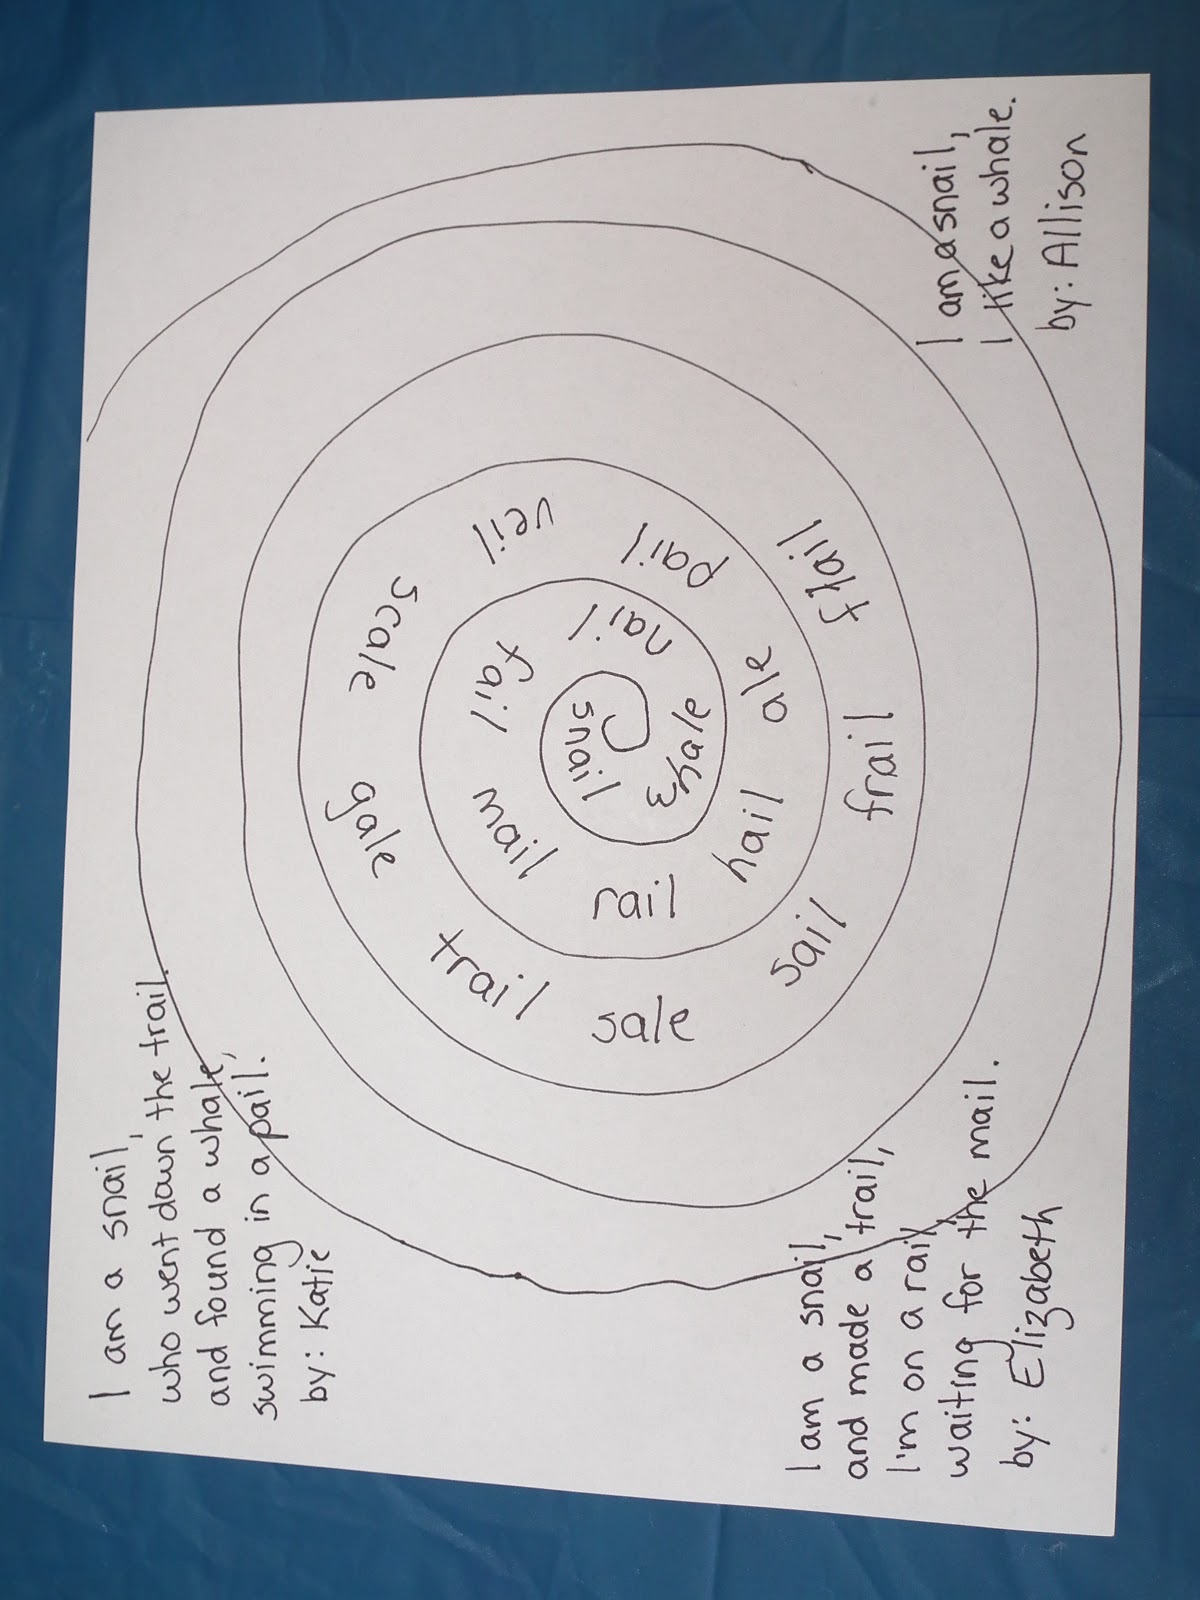 I am a snail,
who went down the trail.
and found a whale,
swimming in a pail.
by: Katie
snail
whale
nail
fail
mail
rail
hail
ale
pail
veil
scale
gale
trail
sale
sail
frail
flail
I am a snail,
and made a trail,
I'm on a rail
waiting for the mail.
by: Elizabeth
I am a snail,
I like a whale.
by: Allison